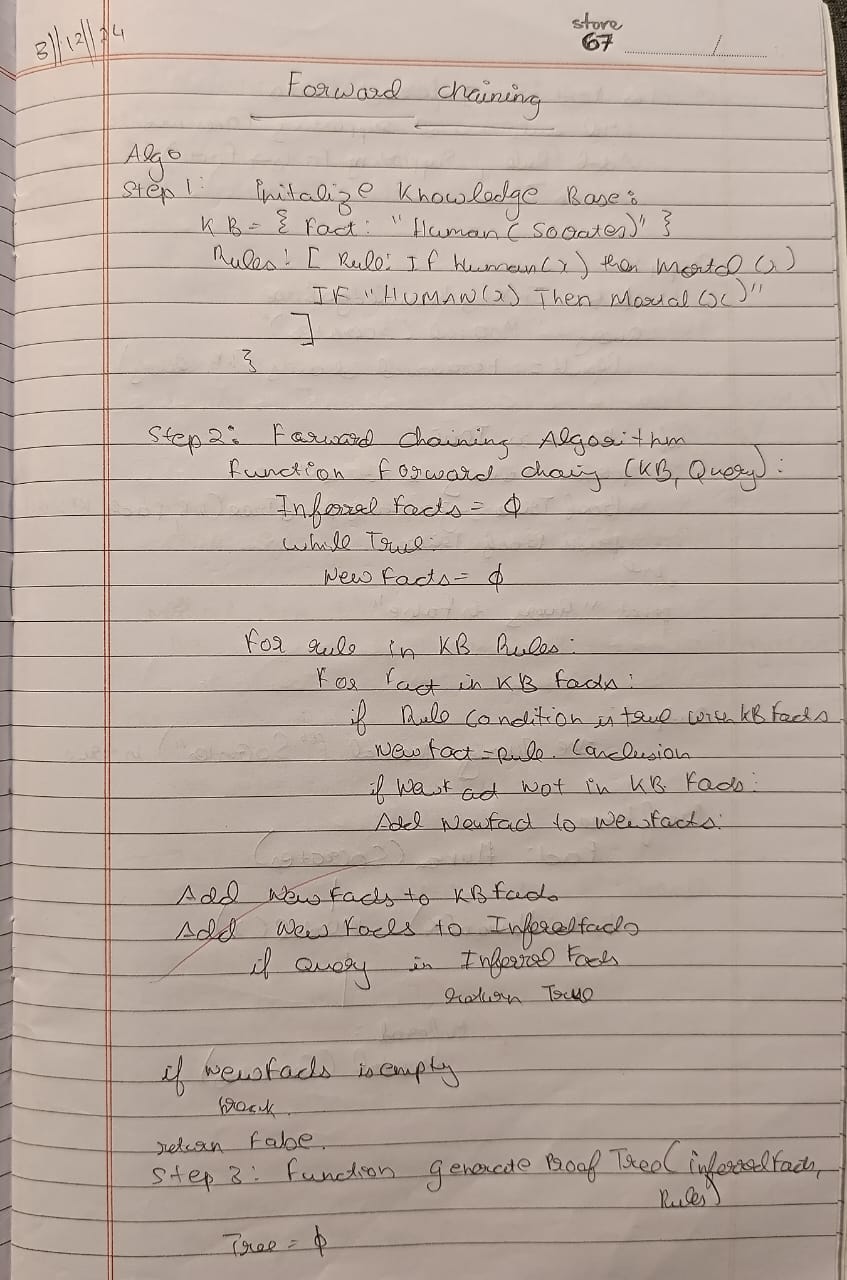 3/12/24
store
67
Forward chaining
Algo
Step 1: Initalize Knowledge Base:
KB = { Fact: "Human (Socrates)" }
Rules: [ Rule: If Human(x) then Mortal (x)
IF "HUMAN(x) Then Mortal (x)"
]
}
Step 2: Forward Chaining Algorithm
Function forward chaing (KB, Query):
Inferrel facts = ϕ
while True:
New facts = ϕ
For rule in KB Rules:
For fact in KB facts:
if Rule Condition is true with KB facts
New fact = Rule. Conclusion
if not in KB Facts:
Add Newfact to Newfacts:
Add New Facts to KB facts
Add New facts to Inferelfacts
if Query in Inferred Facts
return True
if newfacts is empty
break.
return False.
Step 3: Function generate Proof Tree( inferred Facts,
Rules)
Tree = ϕ